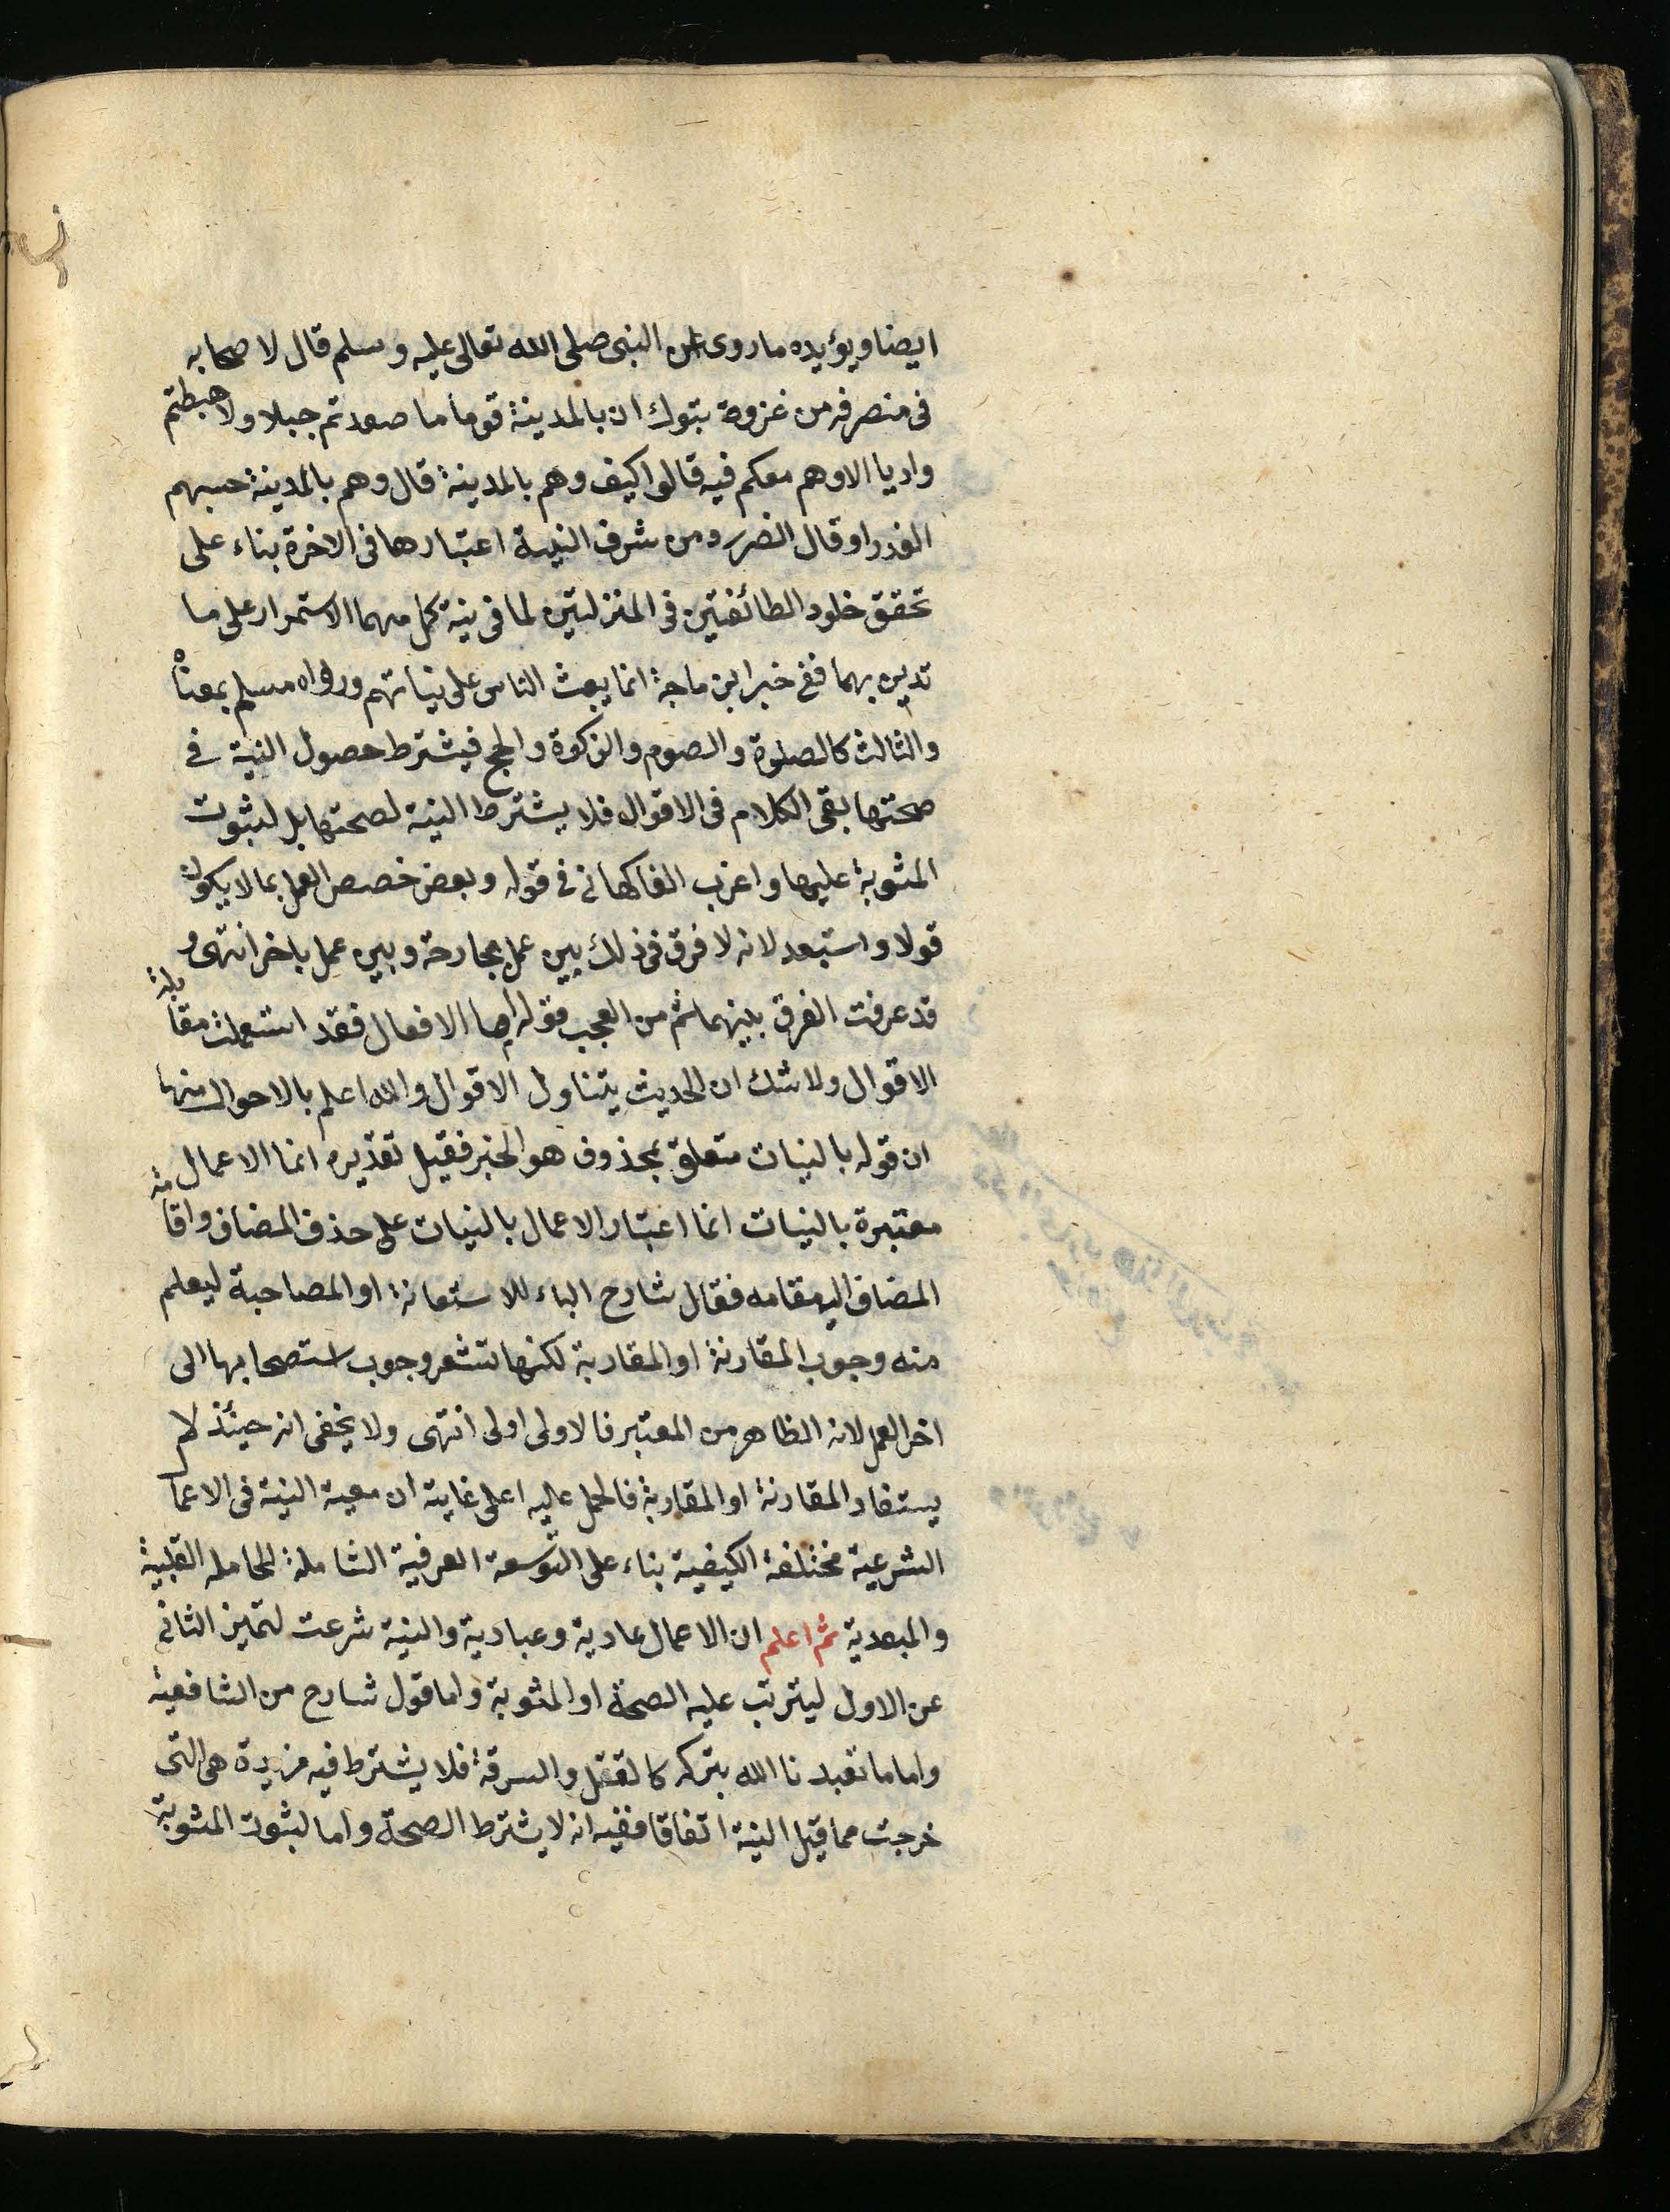 ايضا ويؤيده ما روى عن النبى صلى الله تعالى عليه وسلم قال لاصحابه
فى منصرفه من غزوة بتوك ان بالمدينة قوما ما صعدتم جبلا ولا هبطتم
واديا الا وهم معكم فيه قالوا كيف وهم بالمدينة قال وهم بالمدينة حبسهم
العذر او قال الضرر ومن شرف النية اعتبارها فى الاخرة بناء على
تحقق خلود الطائفتين فى المنزلتين لما فى نية كل منهما الاستمرار على ما
تدين بهما ففى خبر ابن ماجة انما يبعث الناس على نياتهم ورواه مسلم بمعناه
والثالث كالصلوة والصوم والزكوة والحج فيشترط حصول النية فى
صحتها بقى الكلام فى الاقوال فلا يشترط النية لصحتها بل لثبوت
المثوبة عليها واغرب الفاكهانى فى قوله وبعض خصص العمل بما لا يكون
قولا واستبعد لانه لا فرق فى ذلك بين عمل بجارحة وبين عمل باخر انتهى و
قد عرفت الفرق بينهما ثم من العجب قوله اما الافعال فقد استعملت مقابلة
الاقوال ولا شك ان الحديث يتناول الاقوال والله اعلم بالاحوال منها
ان قوله بالنيات متعلق بمحذوف هو الخبر فقيل تقديره انما الاعمال
معتبرة بالنيات انما اعتبار الاعمال بالنيات على حذف المضاف واقامة
المضاف اليه مقامه فقال شارح الباء للاستعانة او المصاحبة ليعلم
منه وجوب المقارنة او المقاربة لكنها تشعر وجوب استصحابها الى
اخر العمل لانه الظاهر من المعتبر فالاولى اولى انتهى ولا يخفى انه حينئذ لم
يستفاد المقارنة او المقاربة فالحمل عليه اعلى غاية ان معية النية فى الاعما
الشرعية مختلفة الكيفية بناء على التوسعة العرفية الشاملة للحامله القلبية
والمبعدية ثم اعلم ان الاعمال عادية وعبادية والنية شرعت لتميز الثانى
عن الاول ليترتب عليه الصحة او المثوبة واما قول شارح من الشافعية
واما ما تعبدنا الله بتركه كالقتل والسرقة فلا يشترط فيه مزيدة هى التى
خرجت مما قيل النية اتفاقا ففيه انه لا يشترط الصحة واما لثبوت المثوبة